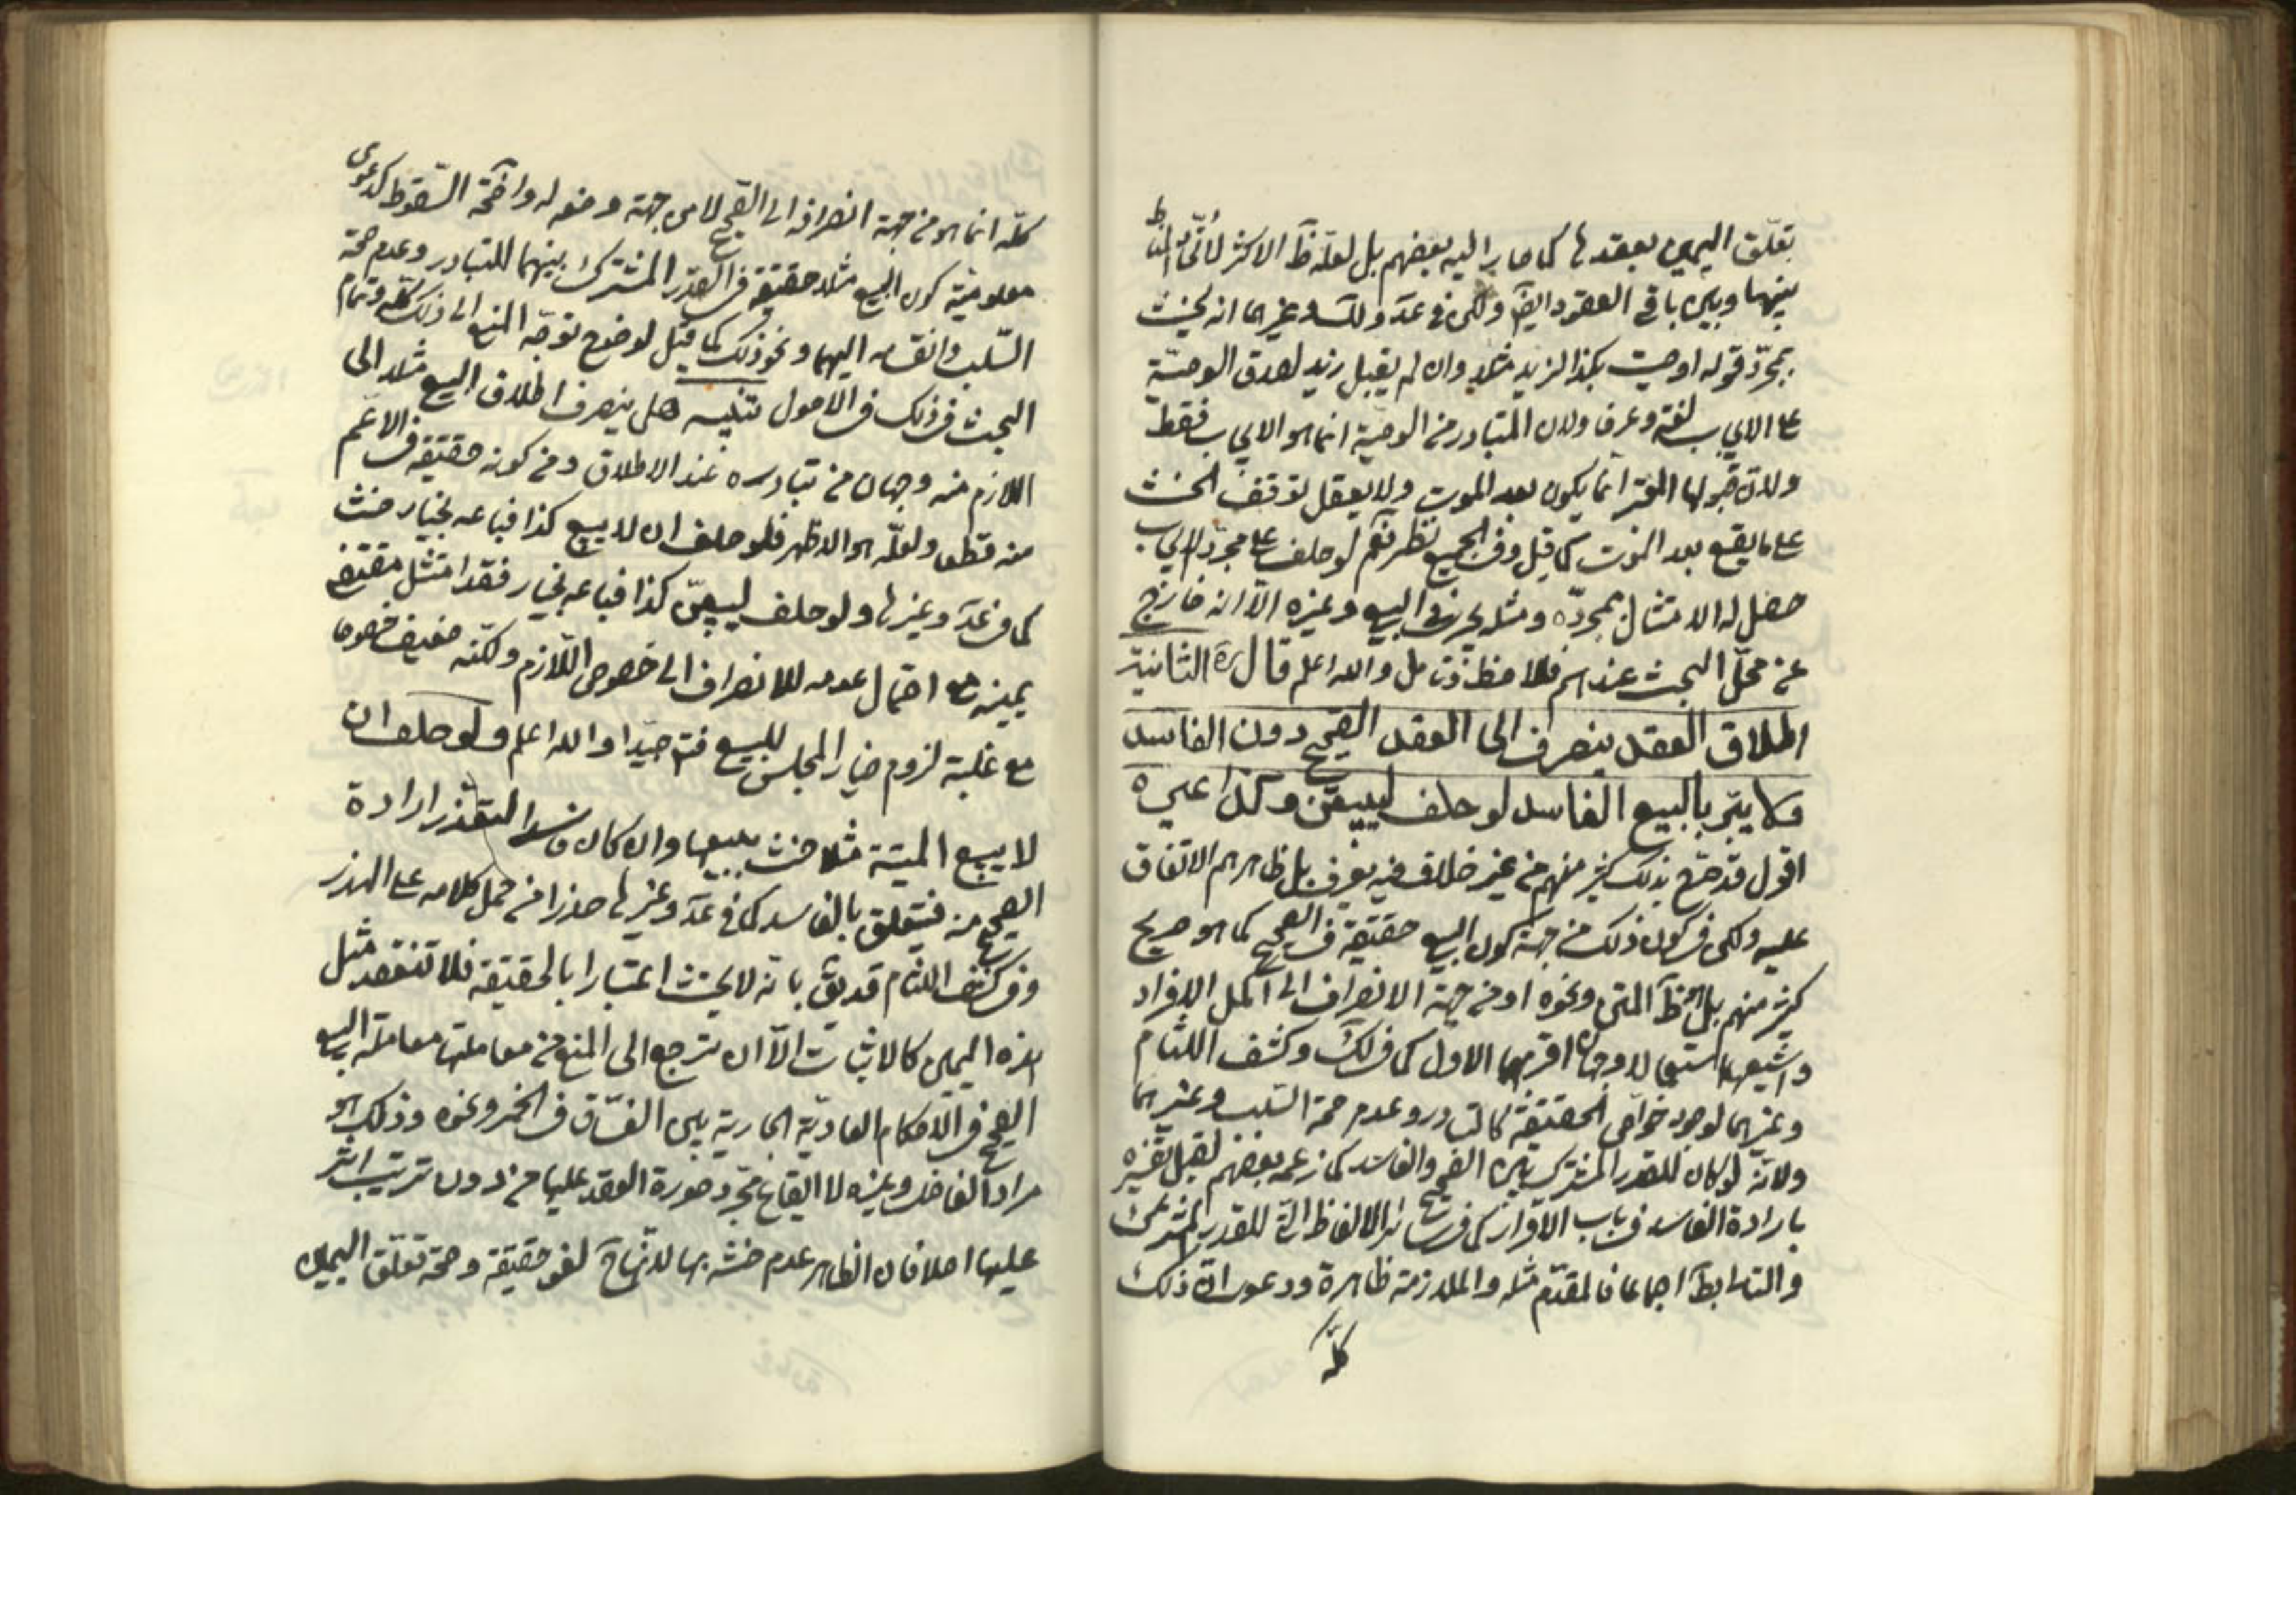 تعلّق اليمين بعقدها كما صار اليه بعضهم بل لعلّه ظ الاكثر لاتّحاد المناط
بينهما وبين باقي العقود ايضا ولكن في عد ولك وغيرهما انه يحنث
بمجرّد قوله اوصيت بكذا لزيد مثلا وان لم يقبل زيد لصدق الوصيّة
على الايجاب لغة وعرفا ولان المتبادر من الوصية انما هو الايجاب فقط
ولان قبولها المعتبر انما يكون بعد الموت ولا يعقل توقف الحنث
على ما يقع بعد الموت كما قيل وفي الجميع نظر نعم لو حلف على مجرّد الايجاب
حصل له الامتثال بمجرّده ومثله يجري في البيع وغيره الّا انه خارج
عن محلّ البحث عندهم فلاحظ وتامل والله اعلم قال ره الثانية
اطلاق العقد ينصرف الى العقد الصحيح دون الفاسد
ولا يبرّ بالبيع الفاسد لو حلف ليبيعنّ وكذا غيره
اقول قد صرّح بذلك كثير منهم من غير خلاف فيه يعرف بل ظاهرهم الاتفاق
عليه ولكن في كون ذلك من جهة كون البيع حقيقة في الصحيح كما هو صريح
كثير منهم بل ظ المتن ونحوه او من جهة الانصراف الى اكمل الافراد
واشيعها استعمالا وجهان اقربهما الاول كما في لك وكشف اللثام
وغيرهما لوجود خواصّ الحقيقة كالتبادر وعدم صحة السّلب وغيرهما
ولانّه لو كان للقدر المشترك بين الصحيح والفاسد كما زعمه بعضهم لقبل تفسيره
بارادة الفاسد في باب الاقرار كما في سائر الالفاظ الّتي للقدر المشترك
والتالي بط اجماعا فالمقدّم مثله والملازمة ظاهرة ودعوى انّ ذلك
كلّه
كلّه انما هو من جهة انصرافه الى الصّحيح لا من جهة وضعه له واضحة السّقوط كدعوى
معلوميّة كون البيع مثلا حقيقة في القدر المشترك بينهما للتبادر وعدم صحة
السّلب وانقسامه اليهما ونحو ذلك كما قيل لوضوح توجّه المنع الى ذلك كلّه وتمام
البحث في ذلك في الاصول تنبيه هل ينصرف اطلاق البيع مثلا الى
اللازم منه وجهان من تبادره عند الاطلاق ومن كونه حقيقة في الاعم
منه قطعا ولعلّه هو الاظهر فلو حلف ان لا يبيع كذا فباعه بخيار حنث
كما في عد وغيرها ولو حلف ليبيعنّ كذا فباعه بخيار فقد امتثل مقتضى
يمينه مع احتمال عدمه للانصراف الى خصوص اللّازم ولكنّه ضعيف خصوصا
مع غلبة لزوم خيار المجلس للبيع فت جيّدا والله اعلم ولو حلف ان
لا يبيع الميتة مثلا حنث ببيعها وان كان فاسدا لتعذّر ارادة
الصحيح منه فيتعلق بالفاسد كما في عد وغيرها حذرا من حمل كلامه على الهذر
وفي كشف اللثام قد يق بانّه لا يحنث اعتبارا بالحقيقة فلا تنعقد مثل
هذه اليمين كالاثبات الّا ان ترجع الى المنع من معاملتها معاملة البيع
الصحيح في الاحكام العاديّة الجارية بين الفسّاق في الخمر ونحوه وذلك هو
مراد الفاضل وغيره لا ايقاع مجرّد صورة العقد عليها من دون ترتيب اثر
عليها اصلا فان الظاهر عدم حنثه بها لانّها ح لغو حقيقة وصحة تعلّق اليمين